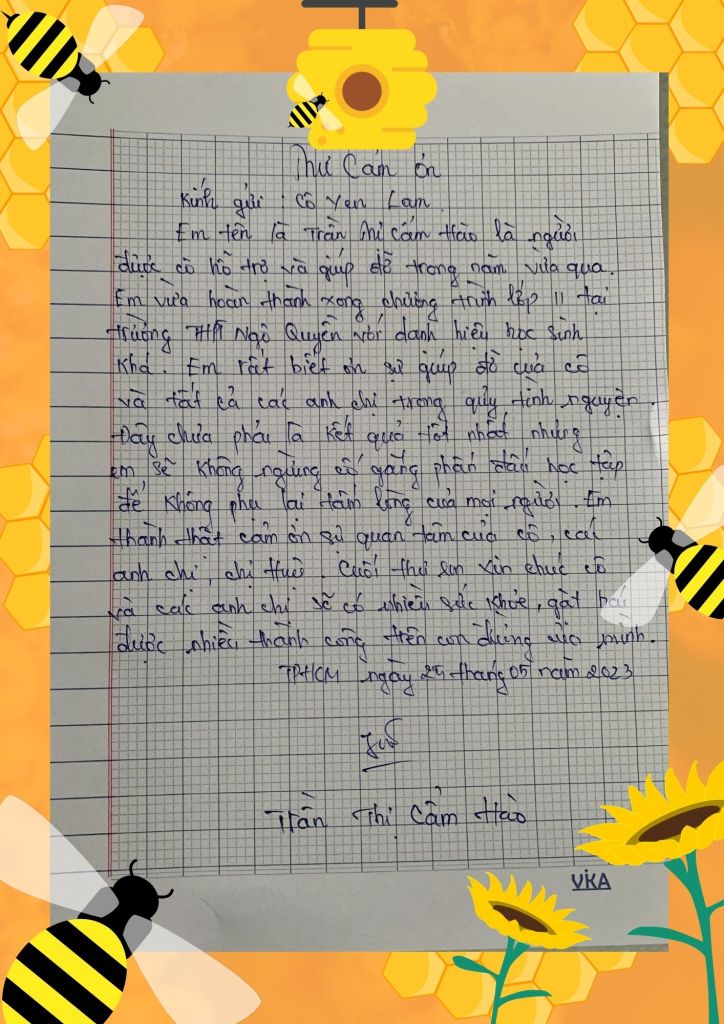 Thư Cảm ơn
Kính gửi : Cô Yến Lam.
Em tên là Trần Thị Cẩm Hào là người
được cô hỗ trợ và giúp đỡ trong năm vừa qua.
Em vừa hoàn thành xong chương trình lớp 11 tại
trường THPT Ngô Quyền với danh hiệu học sinh
khá. Em rất biết ơn sự giúp đỡ của cô
và tất cả các anh chị trong quỹ tình nguyện.
Đây chưa phải là kết quả tốt nhất nhưng
em sẽ không ngừng cố gắng phấn đấu học tập
để không phụ lại tấm lòng của mọi người. Em
thành thật cảm ơn sự quan tâm của cô, các
anh chị, chị Huệ. Cuối thư em xin chúc cô
và các anh chị sẽ có nhiều sức khỏe, gặt hái
được nhiều thành công trên con đường của mình.
TPHCM ngày 25 tháng 05 năm 2023
Trần Thị Cẩm Hào
VIKA